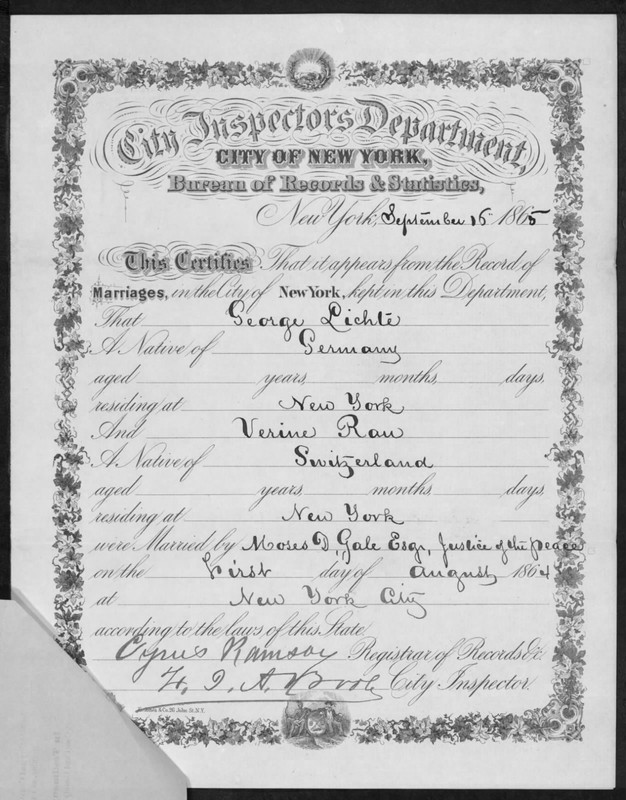 City Inspectors Department,
CITY OF NEW YORK,
Bureau of Records & Statistics,
New York, September 16 1865
This Certifies That it appears from the Record of
Marriages, in the City of New York, kept in this Department,
That George Lichte
A Native of Germany
aged years, months, days,
residing at New York
And Verine Rau
A Native of Switzerland
aged years, months, days,
residing at New York
were Married by Moses D. Gale Esqr, Justice of the peace
on the First day of August 1864
at New York City
according to the laws of this State.
Cyrus Ramsay Registrar of Records &c.
F. I. A. Boole City Inspector.
& Co. John St. N.Y.